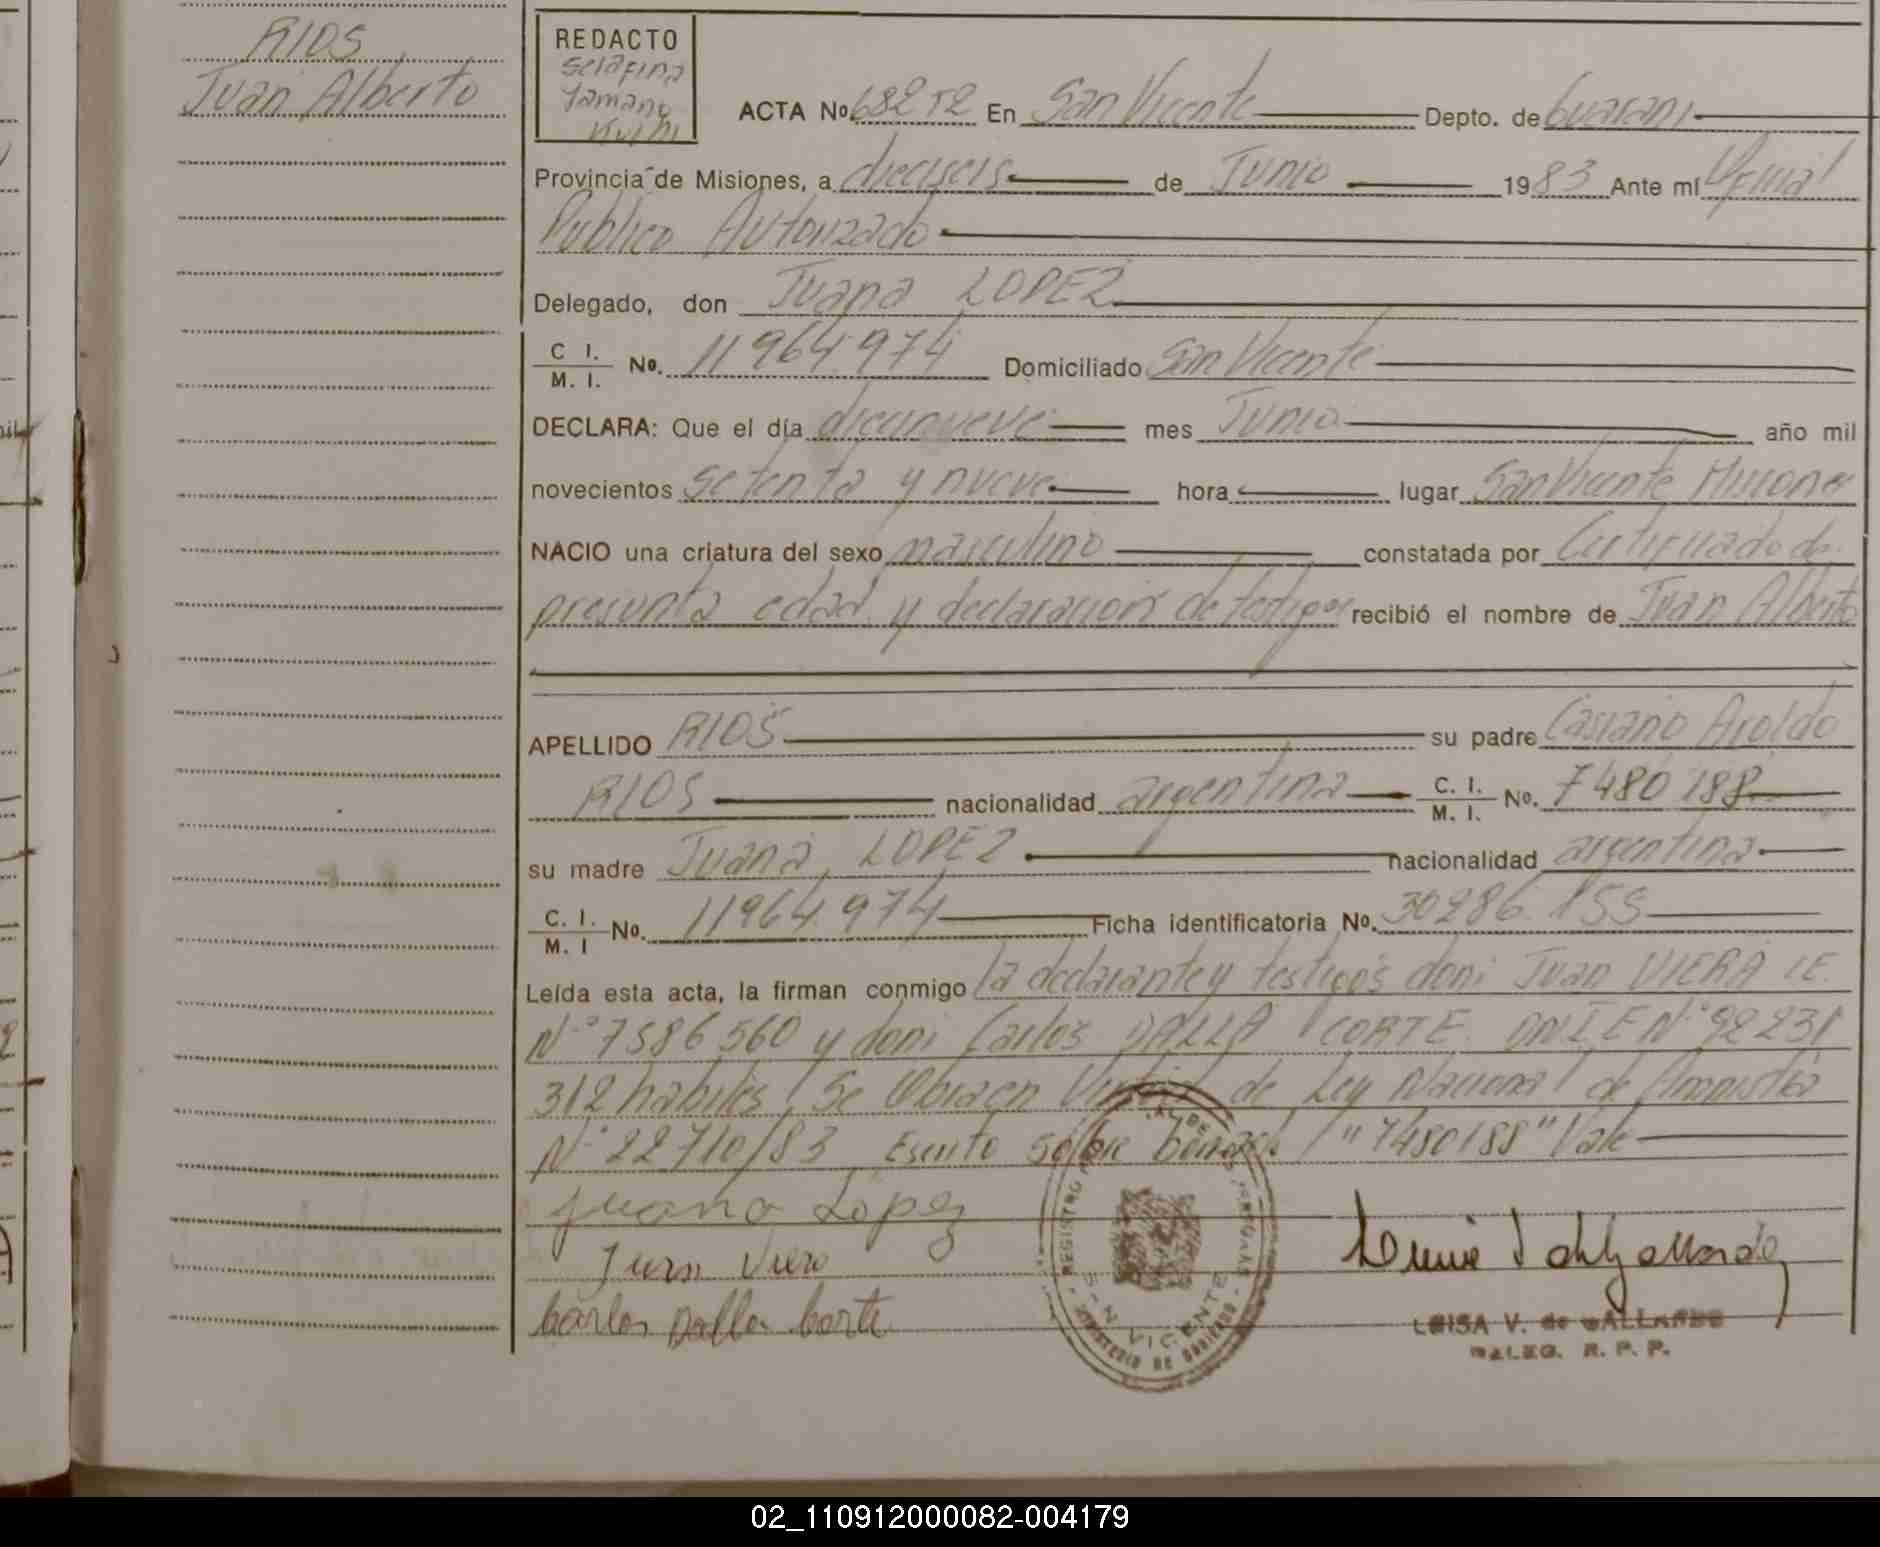 RIOS
Juan Alberto
REDACTO
Serafina
Tamano
ACTA No. 68252 En San Vicente Depto. de Guarani
Provincia de Misiones, a dieciseis de Junio 1983 Ante mí Oficial
Publico Autorizado
Delegado, don Juana LOPEZ
C I. M. I. No. 11964.974 Domiciliado San Vicente
DECLARA: Que el día diecinueve mes Junio año mil
novecientos setenta y nueve hora lugar San Vicente Misiones
NACIO una criatura del sexo masculino constatada por Certificado de
presunta edad y declaracion de testigos recibió el nombre de Juan Alberto
APELLIDO RIOS su padre Casiano Aroldo
RIOS nacionalidad argentina C. I. M. I. No. 7480188
su madre Juana LOPEZ nacionalidad argentina
C. I. M. I No. 11964.974 Ficha identificatoria No. 30286155
Leída esta acta, la firman conmigo la declarante y testigos don: Juan VIERA LE.
N° 7586560 y don: Carlos DALLA CORTE DNIE N° 92231
312 habiles, Se Labra en Virtud de Ley Nacional de Amnistia
N° 22710/83 Escrito sobre borrado "7480188" Vale
Juana Lopez
Juan Viera
Carlos Dalla Corte
REGISTRO
SAN VICENTE
MINISTERIO DE GOBIERNO
LUISA V. de GALLARDO
DELEG. R. P. P.
02_110912000082-004179